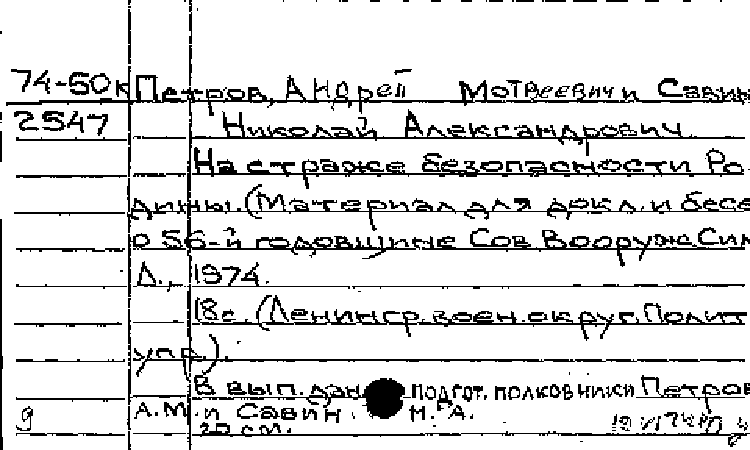 74-50к Петров, Андрей Матвеевич и Савин
2547 Николай Александрович
На страже безопасности Ро-
дины. (Материал для докл. и бесе
о 56-й годовщине Сов. Вооруж. Сил
Л., 1974.
18с. (Ленингр. воен. округ. Полит
упр.).
В вып. дан подгот. полковники Петров
А.М. и Савин. Н.А.
20 см.